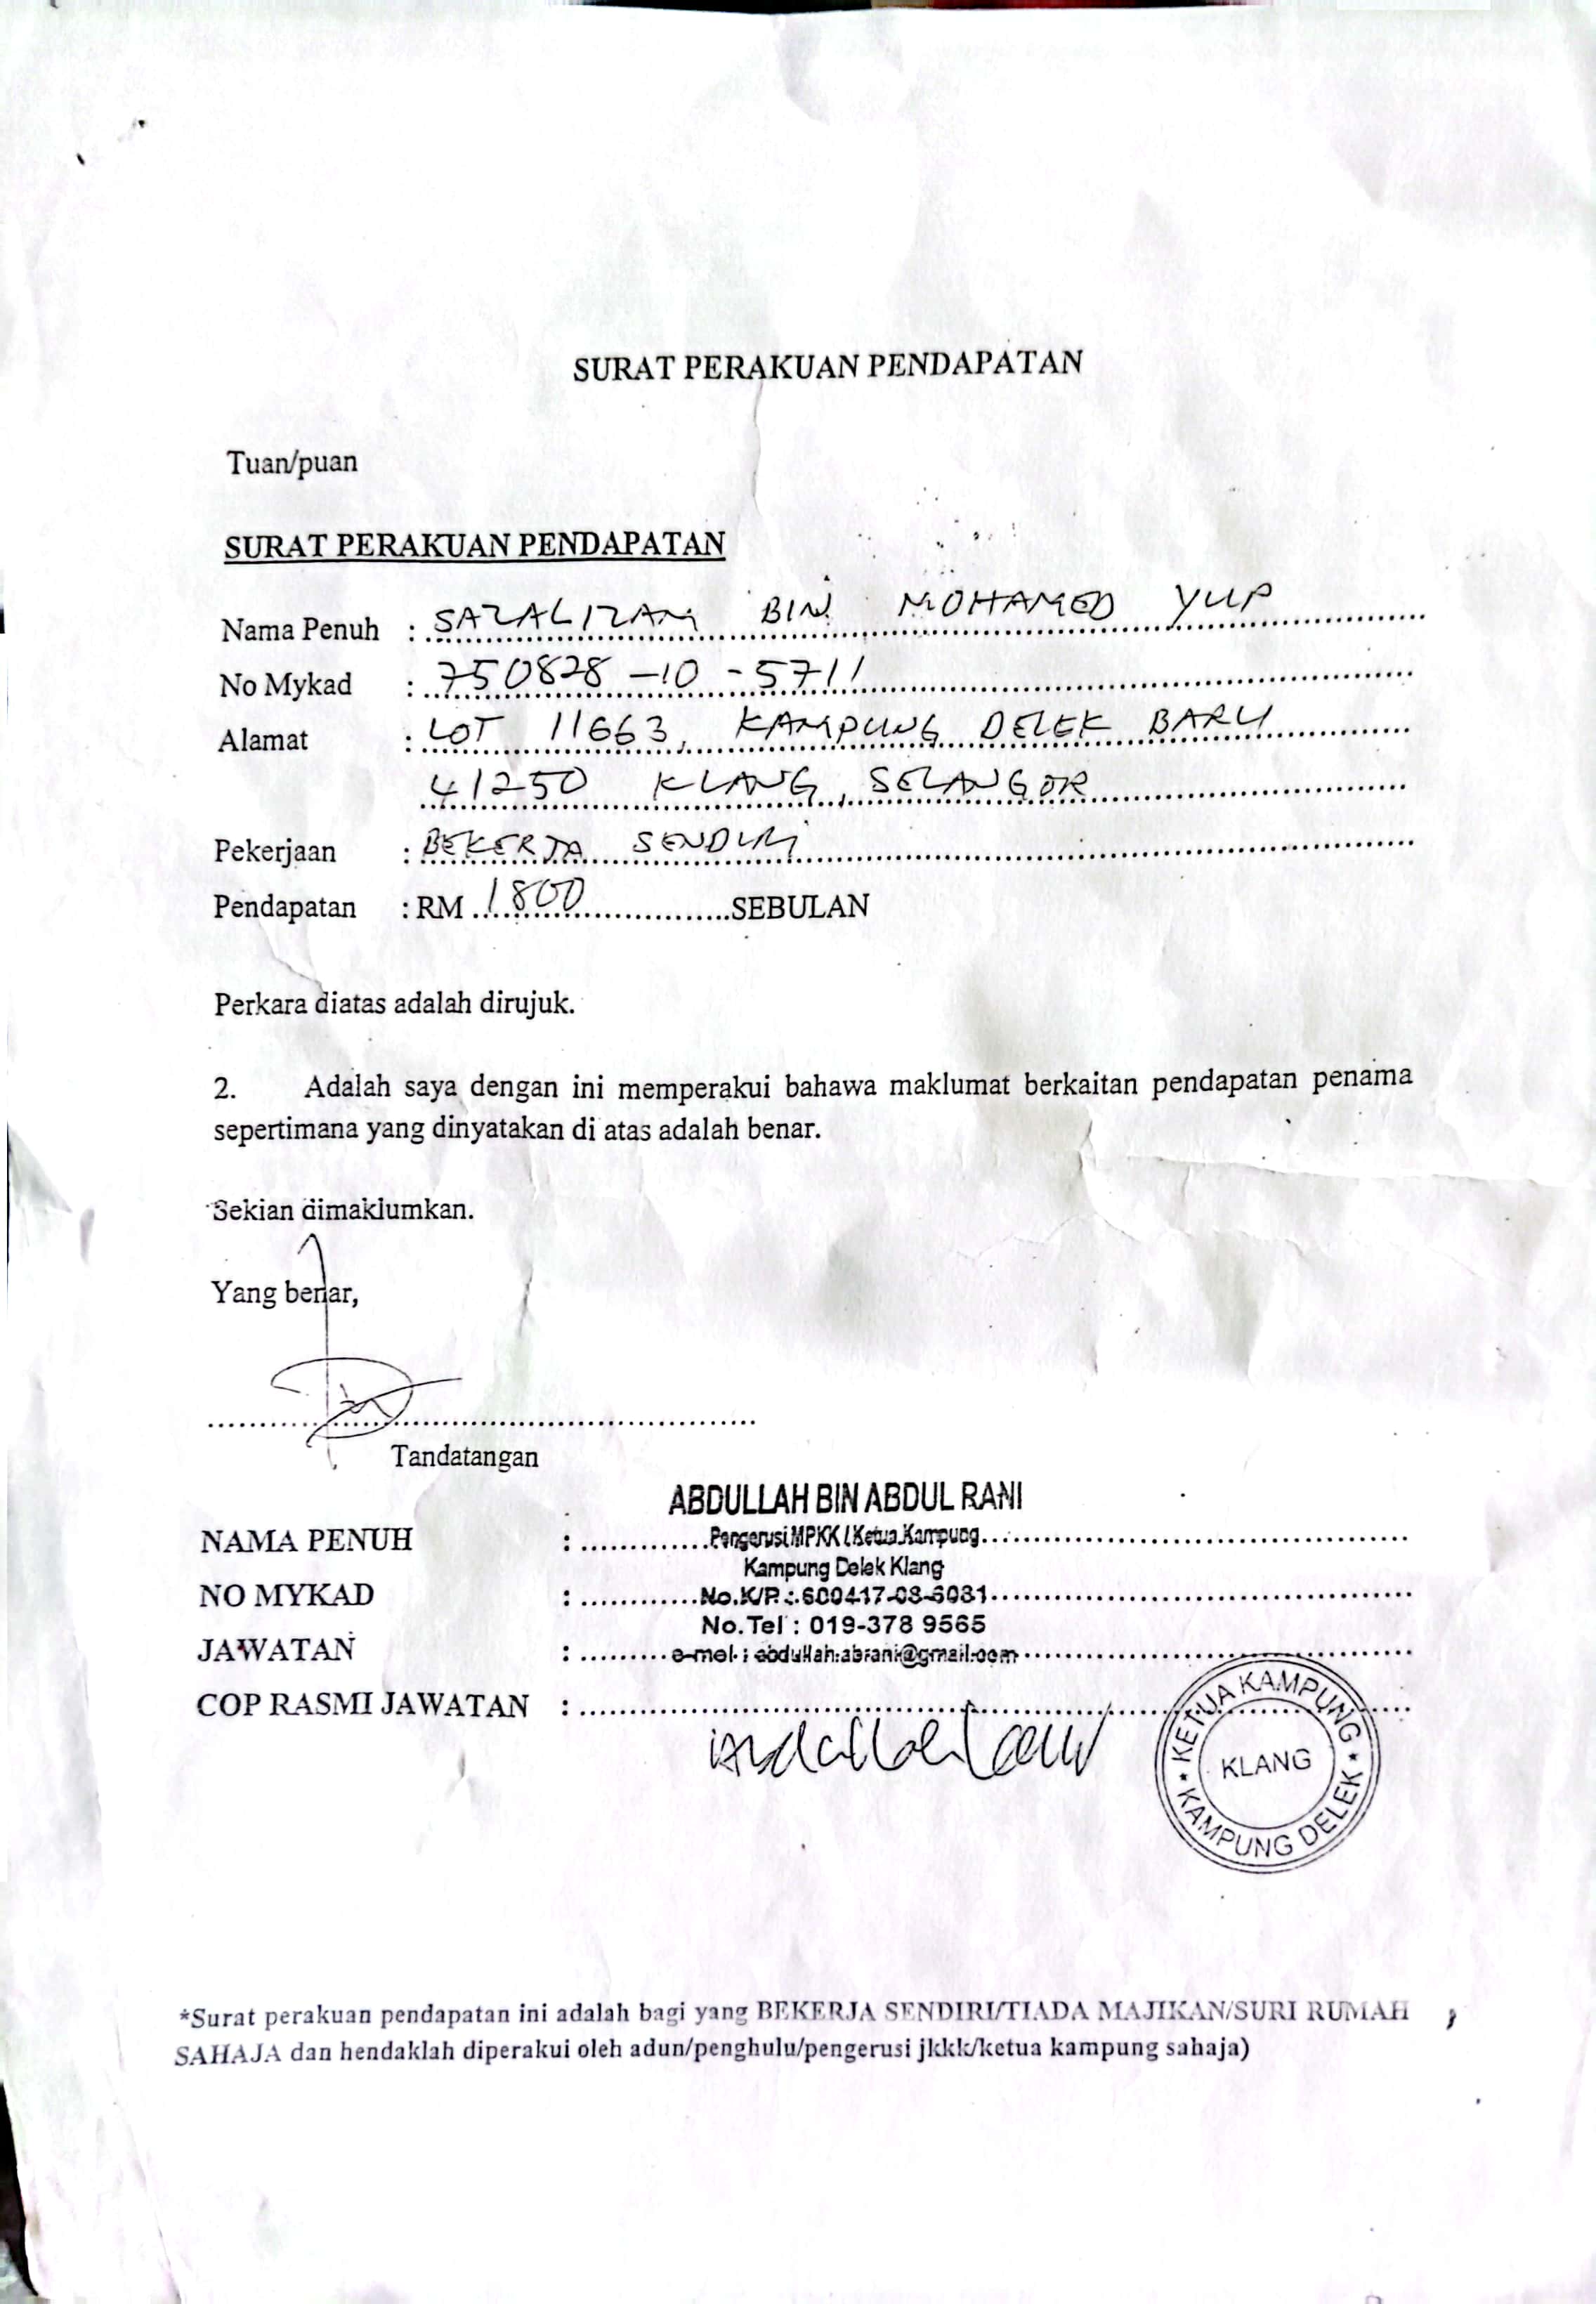 SURAT PERAKUAN PENDAPATAN
Tuan/puan
SURAT PERAKUAN PENDAPATAN
Nama Penuh : SAZALIZAM BIN MOHAMED YUP
No Mykad : 750828-10-5711
Alamat : LOT 11663, KAMPUNG DELEK BARU
41250 KLANG, SELANGOR
Pekerjaan : BEKERJA SENDIRI
Pendapatan : RM 1800 SEBULAN
Perkara diatas adalah dirujuk.
2. Adalah saya dengan ini memperakui bahawa maklumat berkaitan pendapatan penama
sepertimana yang dinyatakan di atas adalah benar.
Sekian dimaklumkan.
Yang benar,
Tandatangan
ABDULLAH BIN ABDUL RANI
NAMA PENUH : Pengerusi MPKK / Ketua Kampung
Kampung Delek Klang
NO MYKAD : No.K/P. : 600417-08-6081
No.Tel : 019-378 9565
JAWATAN : e-mel : abdullah.abrani@gmail.com
COP RASMI JAWATAN :
KETUA KAMPUNG
KLANG
KAMPUNG DELEK
*Surat perakuan pendapatan ini adalah bagi yang BEKERJA SENDIRI/TIADA MAJIKAN/SURI RUMAH
SAHAJA dan hendaklah diperakui oleh adun/penghulu/pengerusi jkkk/ketua kampung sahaja)